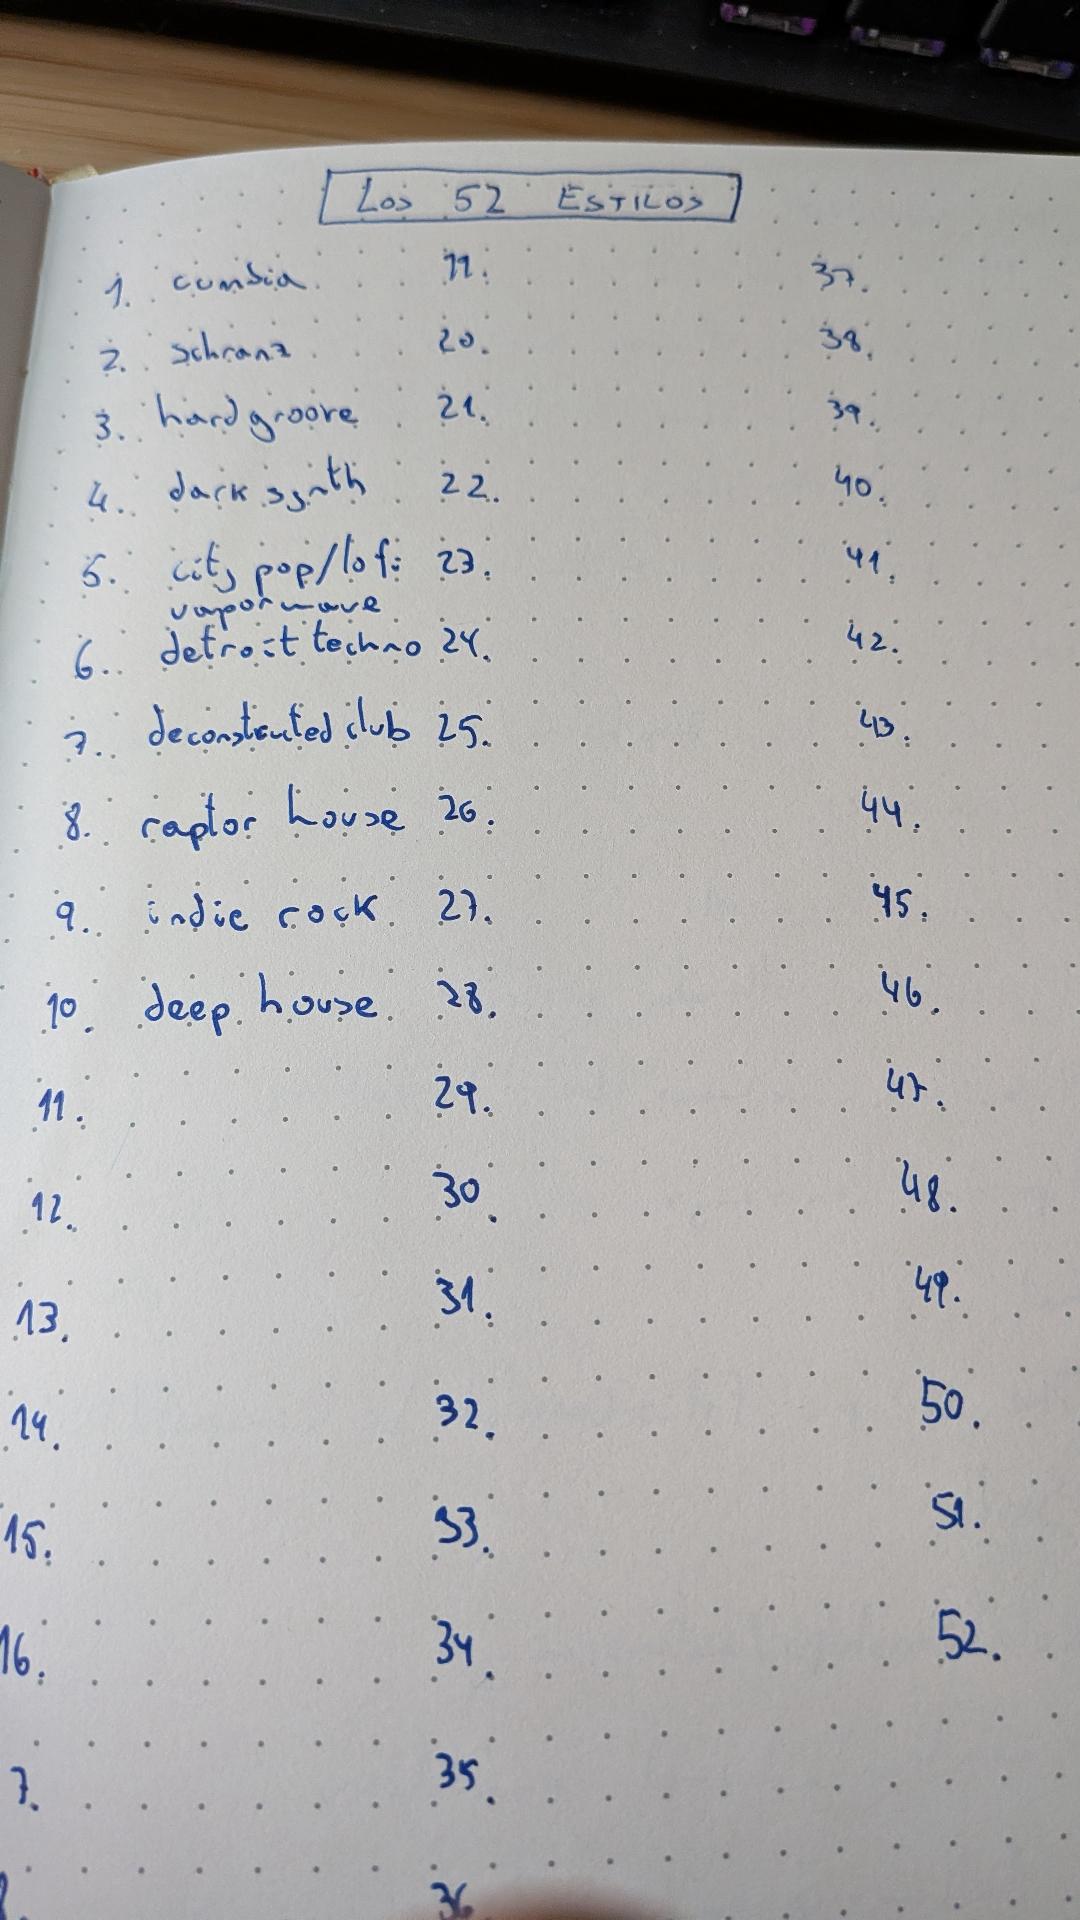 Los 52 Estilos
1. cumbia
2. schranz
3. hardgroove
4. dark synth
5. city pop/lofi
vaporwave
6. detroit techno
7. deconstructed club
8. raptor house
9. indie rock
10. deep house
11.
12.
13.
14.
15.
16.
7.
19.
20.
21.
22.
23.
24.
25.
26.
27.
28.
29.
30.
31.
32.
33.
34.
35.
36
37.
38.
39.
40.
41.
42.
43.
44.
45.
46.
47.
48.
49.
50.
51.
52.